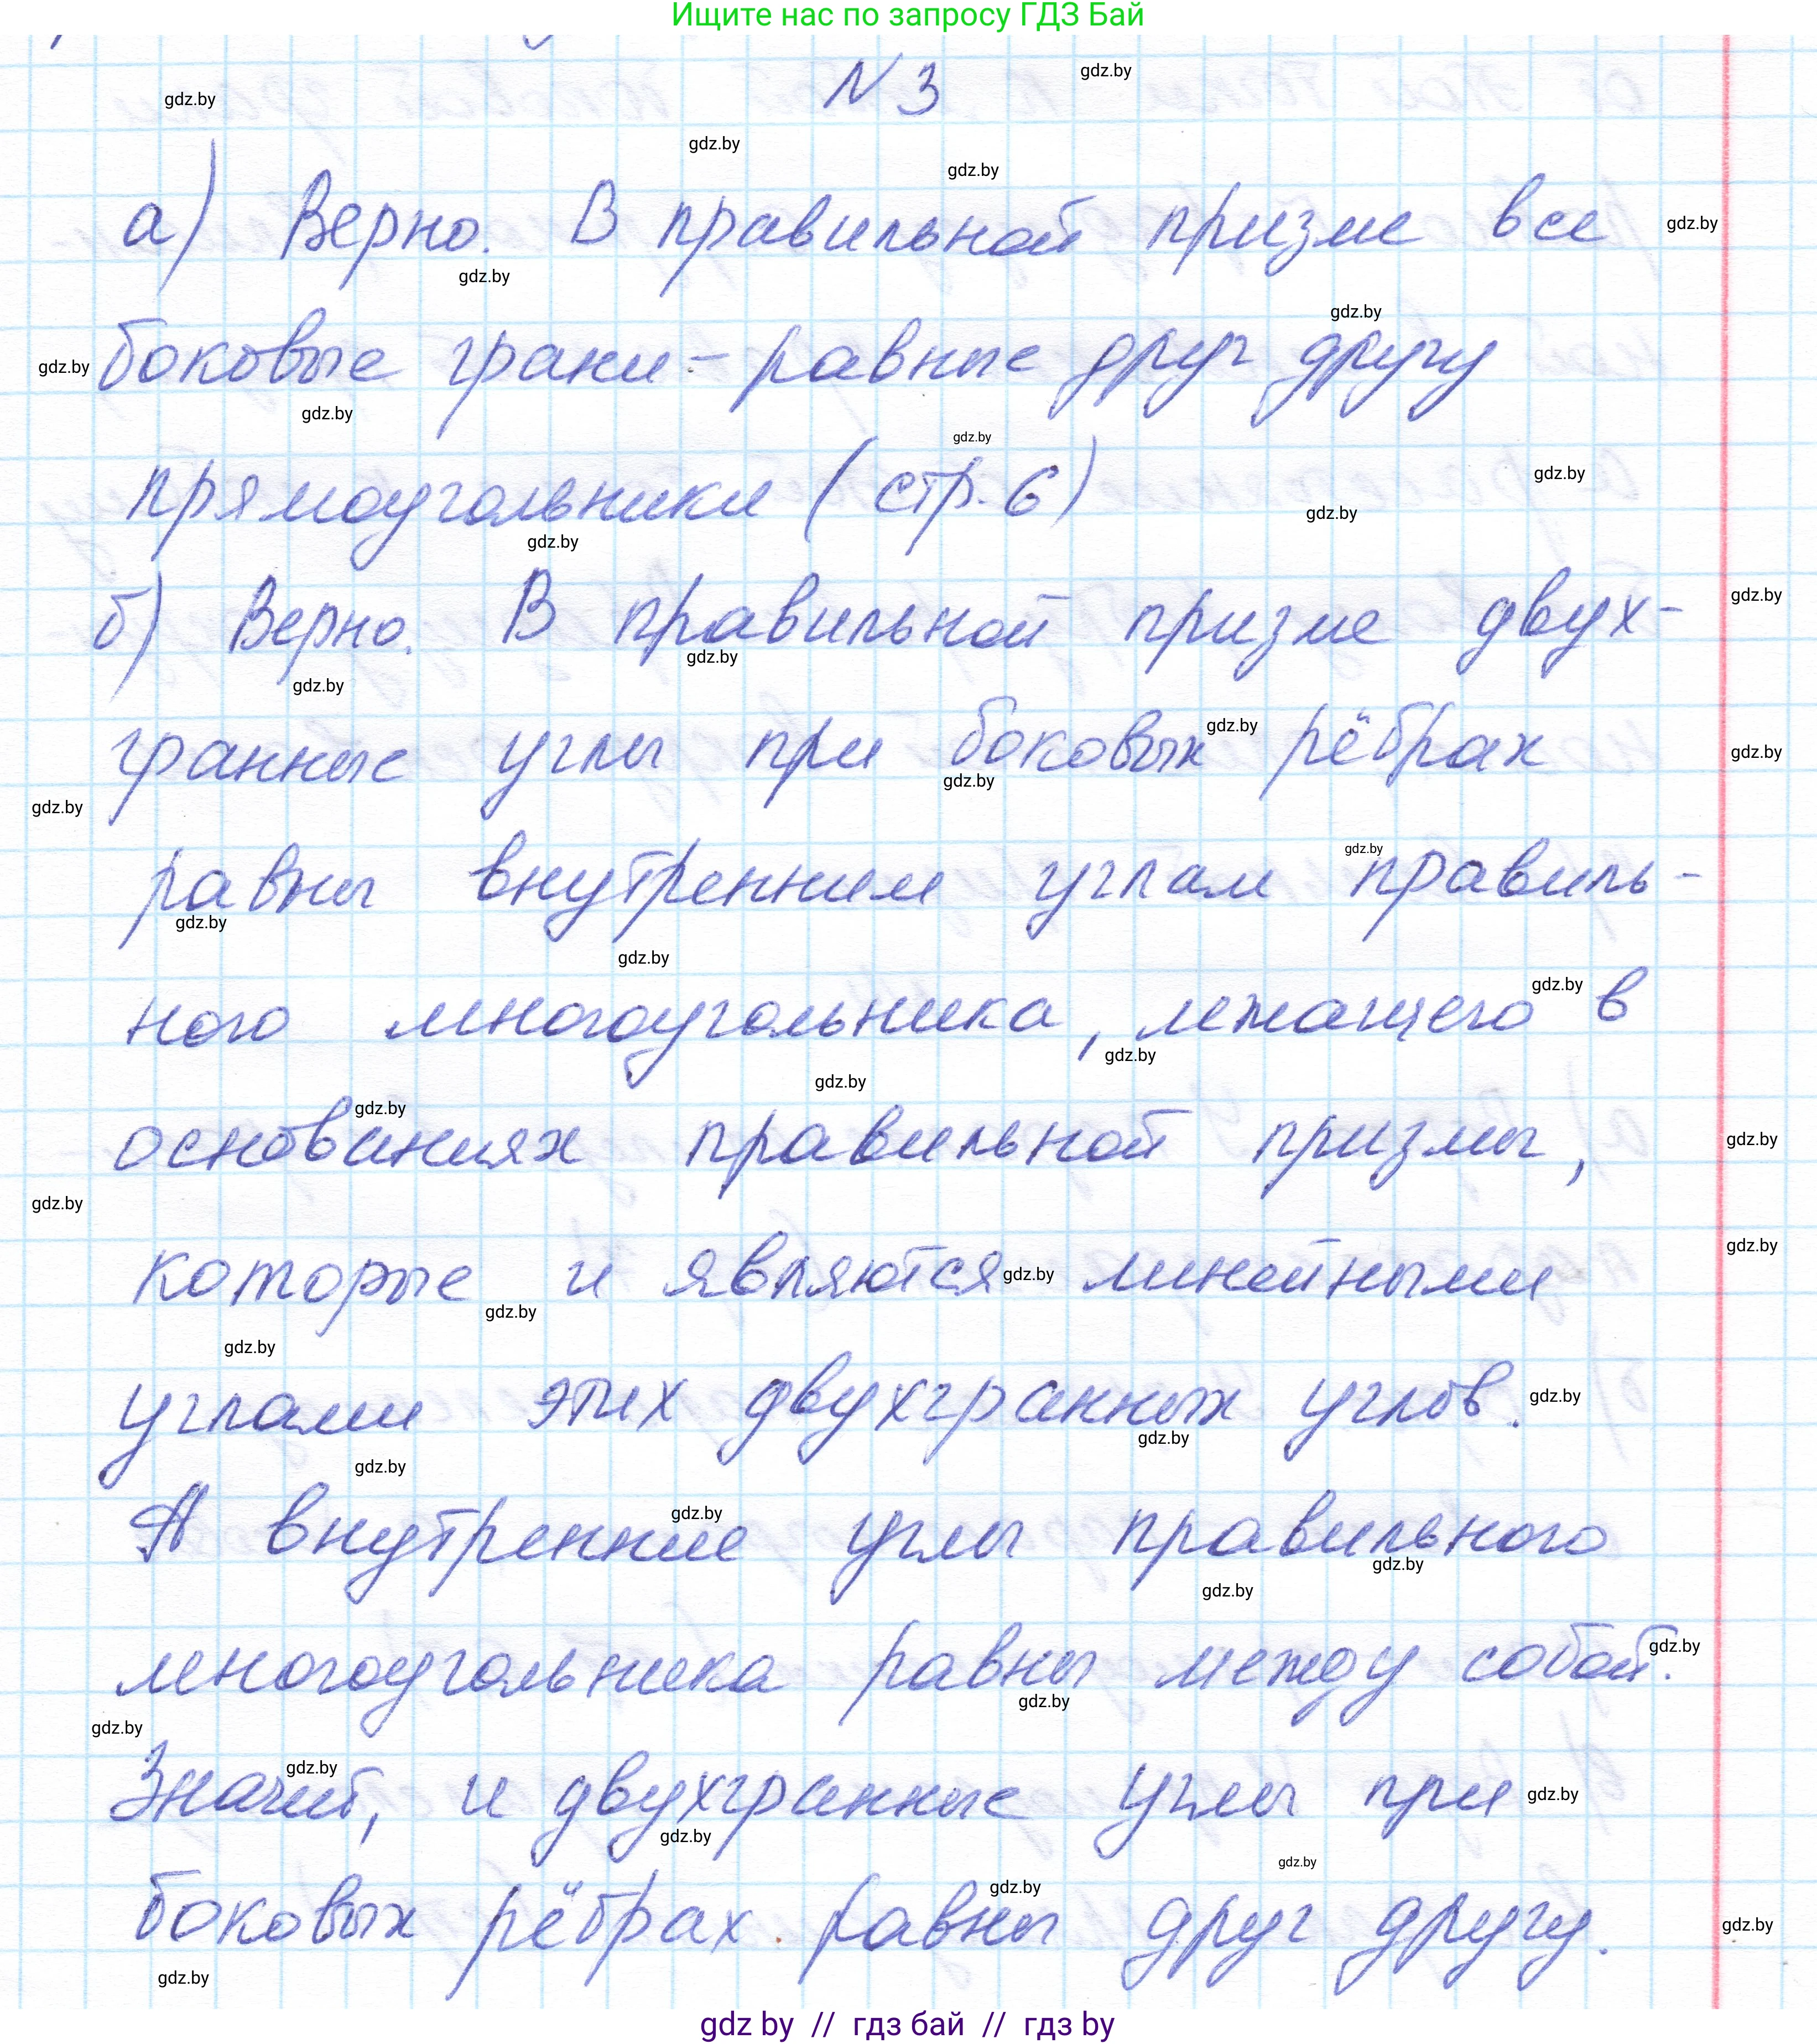 Ищите нас по запросу ГДЗ Бай
N 3
а) Верно. В правильной призме все
боковые грани - равные друг другу
прямоугольники (стр. 6)
б) Верно. В правильной призме двух-
гранные углы при боковых рёбрах
равны внутренним углам правиль-
ного многоугольника, лежащего в
основаниях правильной призмы,
которые и являются линейными
углами этих двухгранных углов.
А внутренние углы правильного
многоугольника равны между собой.
Значит, и двухгранные углы при
боковых рёбрах равны друг другу.
gdz by // гдз бай // гдз by